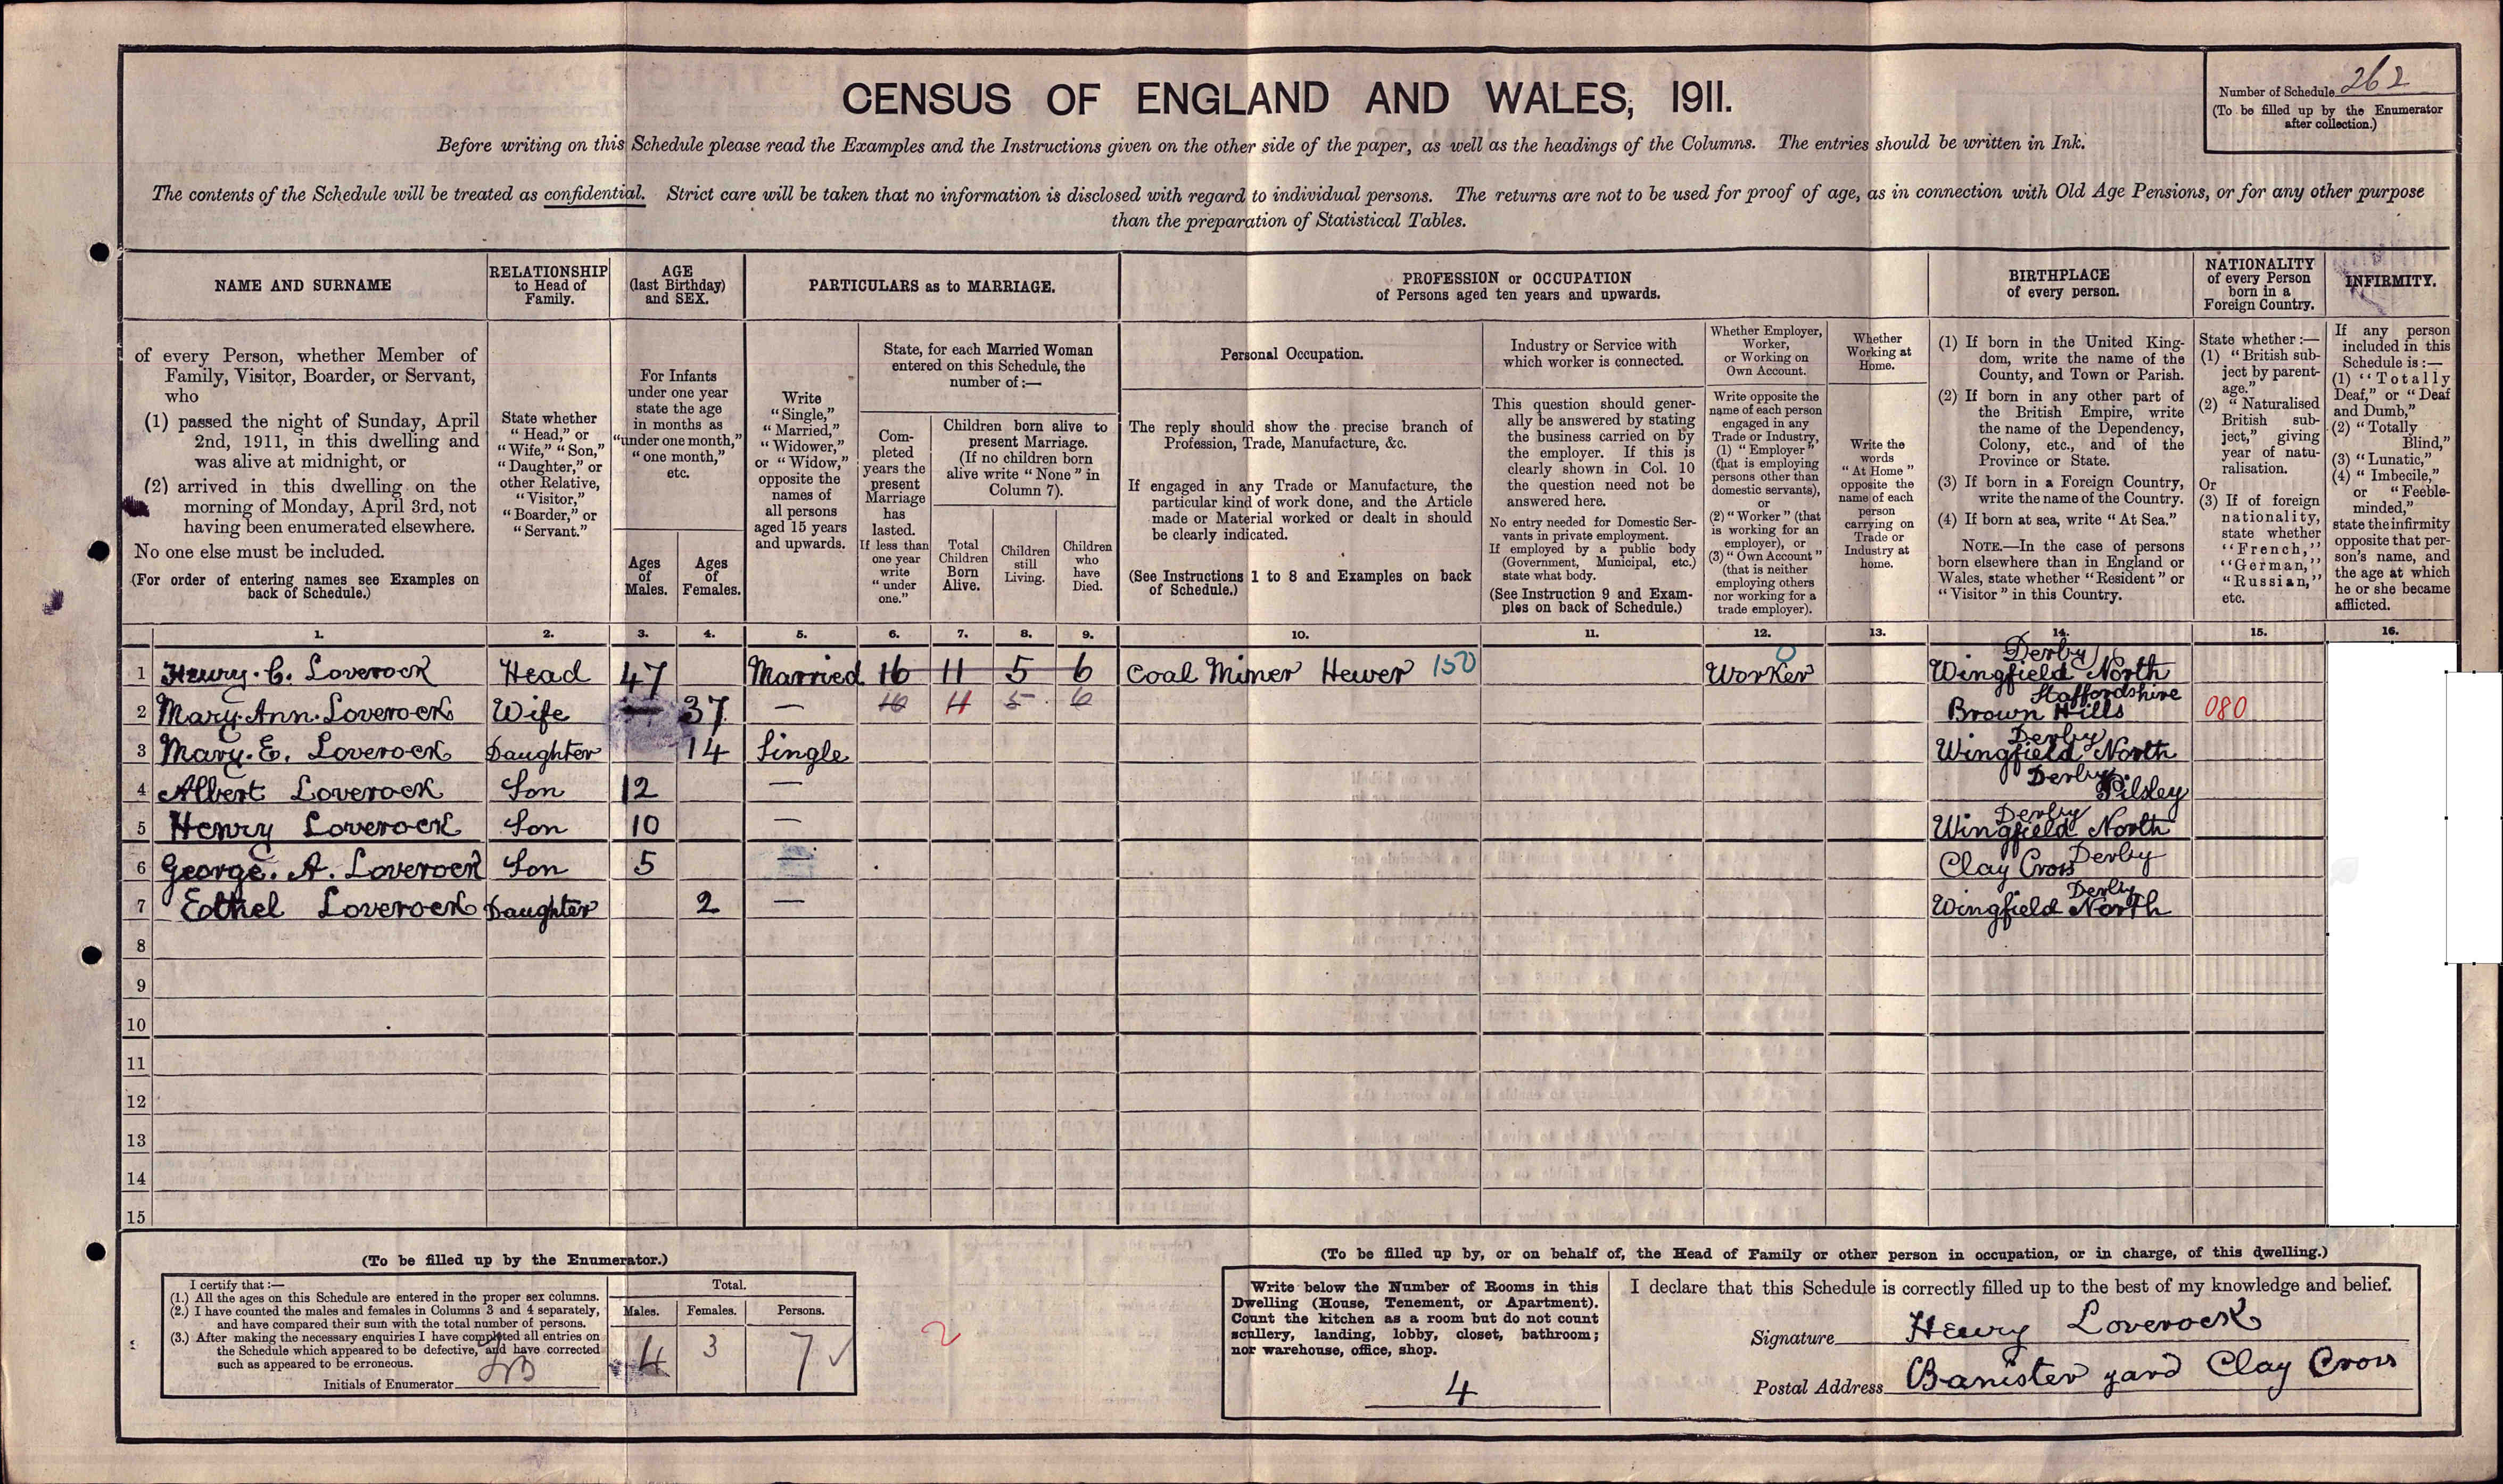 CENSUS OF ENGLAND AND WALES, 1911.
Number of Schedule 262
(To be filled up by the Enumerator
after collection.)
Before writing on this Schedule please read the Examples and the Instructions given on the other side of the paper, as well as the headings of the Columns. The entries should be written in Ink.
The contents of the Schedule will be treated as confidential. Strict care will be taken that no information is disclosed with regard to individual persons. The returns are not to be used for proof of age, as in connection with Old Age Pensions, or for any other purpose
than the preparation of Statistical Tables.
NAME AND SURNAME
of every Person, whether Member of
Family, Visitor, Boarder, or Servant,
who
(1) passed the night of Sunday, April
2nd, 1911, in this dwelling and
was alive at midnight, or
(2) arrived in this dwelling on the
morning of Monday, April 3rd, not
having been enumerated elsewhere.
No one else must be included.
(For order of entering names see Examples on
back of Schedule.)
RELATIONSHIP
to Head of
Family.
State whether
"Head," or
"Wife," "Son,"
"Daughter," or
other Relative,
"Visitor,"
"Boarder," or
"Servant."
AGE
(last Birthday)
and SEX.
For Infants
under one year
state the age
in months as
"under one month,"
"one month,"
etc.
Ages
of
Males.
Ages
of
Females.
PARTICULARS as to MARRIAGE.
Write
"Single,"
"Married,"
"Widower,"
or "Widow,"
opposite the
names of
all persons
aged 15 years
and upwards.
State, for each Married Woman
entered on this Schedule, the
number of:—
Com-
pleted
years the
present
Marriage
has
lasted.
If less than
one year
write
"under
one."
Children born alive to
present Marriage.
(If no children born
alive write "None" in
Column 7).
Total
Children
Born
Alive.
Children
still
Living.
Children
who
have
Died.
PROFESSION or OCCUPATION
of Persons aged ten years and upwards.
Personal Occupation.
The reply should show the precise branch of
Profession, Trade, Manufacture, &c.
If engaged in any Trade or Manufacture, the
particular kind of work done, and the Article
made or Material worked or dealt in should
be clearly indicated.
(See Instructions 1 to 8 and Examples on back
of Schedule.)
Industry or Service with
which worker is connected.
This question should gener-
ally be answered by stating
the business carried on by
the employer. If this is
clearly shown in Col. 10
the question need not be
answered here.
No entry needed for Domestic Ser-
vants in private employment.
If employed by a public body
(Government, Municipal, etc.)
state what body.
(See Instruction 9 and Exam-
ples on back of Schedule.)
Whether Employer,
Worker,
or Working on
Own Account.
Write opposite the
name of each person
engaged in any
Trade or Industry,
(1) "Employer"
(that is employing
persons other than
domestic servants),
or
(2) "Worker" (that
is working for an
employer), or
(3) "Own Account"
(that is neither
employing others
nor working for a
trade employer).
Whether
Working at
Home.
Write the
words
"At Home"
opposite the
name of each
person
carrying on
Trade or
Industry at
home.
BIRTHPLACE
of every person.
(1) If born in the United King-
dom, write the name of the
County, and Town or Parish.
(2) If born in any other part of
the British Empire, write
the name of the Dependency,
Colony, etc., and of the
Province or State.
(3) If born in a Foreign Country,
write the name of the Country.
(4) If born at sea, write "At Sea."
NOTE.—In the case of persons
born elsewhere than in England or
Wales, state whether "Resident" or
"Visitor" in this Country.
NATIONALITY
of every Person
born in a
Foreign Country.
State whether:—
(1) "British sub-
ject by parent-
age."
(2) "Naturalised
British sub-
ject," giving
year of natu-
ralisation.
Or
(3) If of foreign
nationality,
state whether
"French,"
"German,"
"Russian,"
etc.
INFIRMITY.
If any person
included in this
Schedule is:—
(1) "Totally
Deaf," or "Deaf
and Dumb,"
(2) "Totally
Blind,"
(3) "Lunatic,"
(4) "Imbecile,"
or "Feeble-
minded,"
state the infirmity
opposite that per-
son's name, and
the age at which
he or she became
afflicted.
1. 2. 3. 4. 5. 6. 7. 8. 9. 10. 11. 12. 13. 14. 15. 16.
1 Henry. C. Loverock Head 47 Married 16 11 5 6 Coal Miner Hewer 150 Worker 0 Derby Wingfield North
2 Mary. Ann. Loverock Wife 37 — 16 11 5 6 Staffordshire Brown Hills 080
3 Mary. E. Loverock Daughter 14 Single Derby Wingfield North
4 Albert Loverock Son 12 — Derby Pilsley
5 Henry Loverock Son 10 — Derby Wingfield North
6 George. A. Loverock Son 5 — Clay Cross Derby
7 Eathel Loverock Daughter 2 — Derby Wingfield North
8
9
10
11
12
13
14
15
(To be filled up by the Enumerator.)
I certify that:—
(1.) All the ages on this Schedule are entered in the proper sex columns.
(2.) I have counted the males and females in Columns 3 and 4 separately,
and have compared their sum with the total number of persons.
(3.) After making the necessary enquiries I have completed all entries on
the Schedule which appeared to be defective, and have corrected
such as appeared to be erroneous.
Initials of Enumerator
Total.
Males. Females. Persons.
4 3 7
2
(To be filled up by, or on behalf of, the Head of Family or other person in occupation, or in charge, of this dwelling.)
Write below the Number of Rooms in this
Dwelling (House, Tenement, or Apartment).
Count the kitchen as a room but do not count
scullery, landing, lobby, closet, bathroom;
nor warehouse, office, shop.
4
I declare that this Schedule is correctly filled up to the best of my knowledge and belief.
Signature Henry Loverock
Postal Address Banister yard Clay Cross